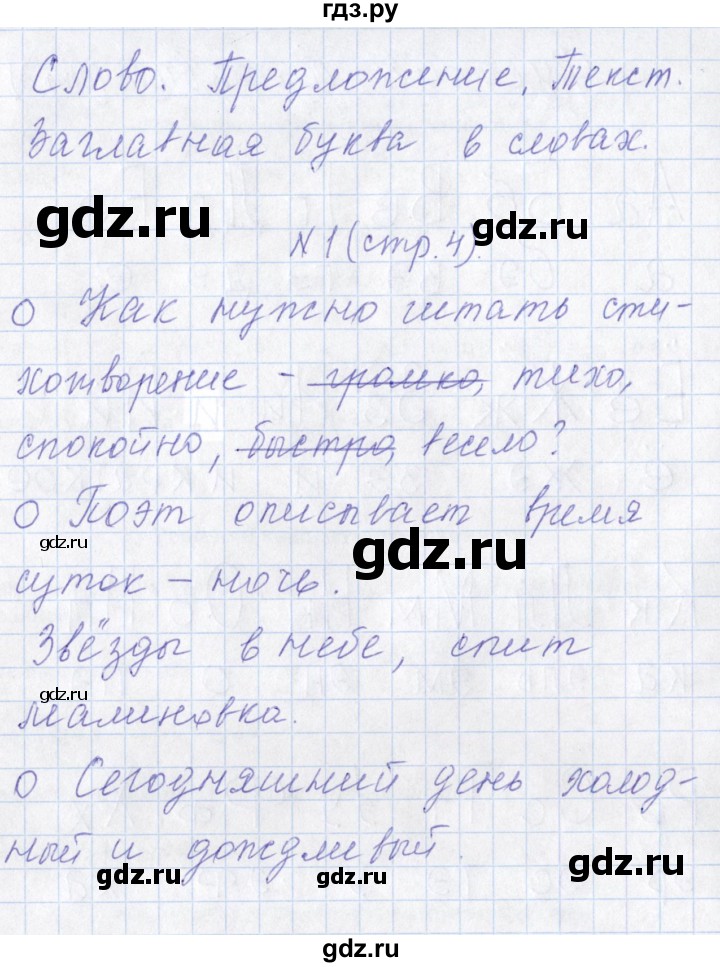 гдз.ру
Слово. Предложение, Текст.
Заглавная буква в словах.
gdz.ru
gdz.ru
№1 (стр. 4).
О Как нужно читать сти-
хотворение - громко, тихо,
спокойно, быстро, весело?
О Поэт описывает время
gdz.ru
gdz.ru
суток – ночь.
Звёзды в небе, спит
gdz.ru
малиновка.
О Сегодняшний день холод-
ный и дождливый.
gdz.ru
gdz.ru
gdz.ru